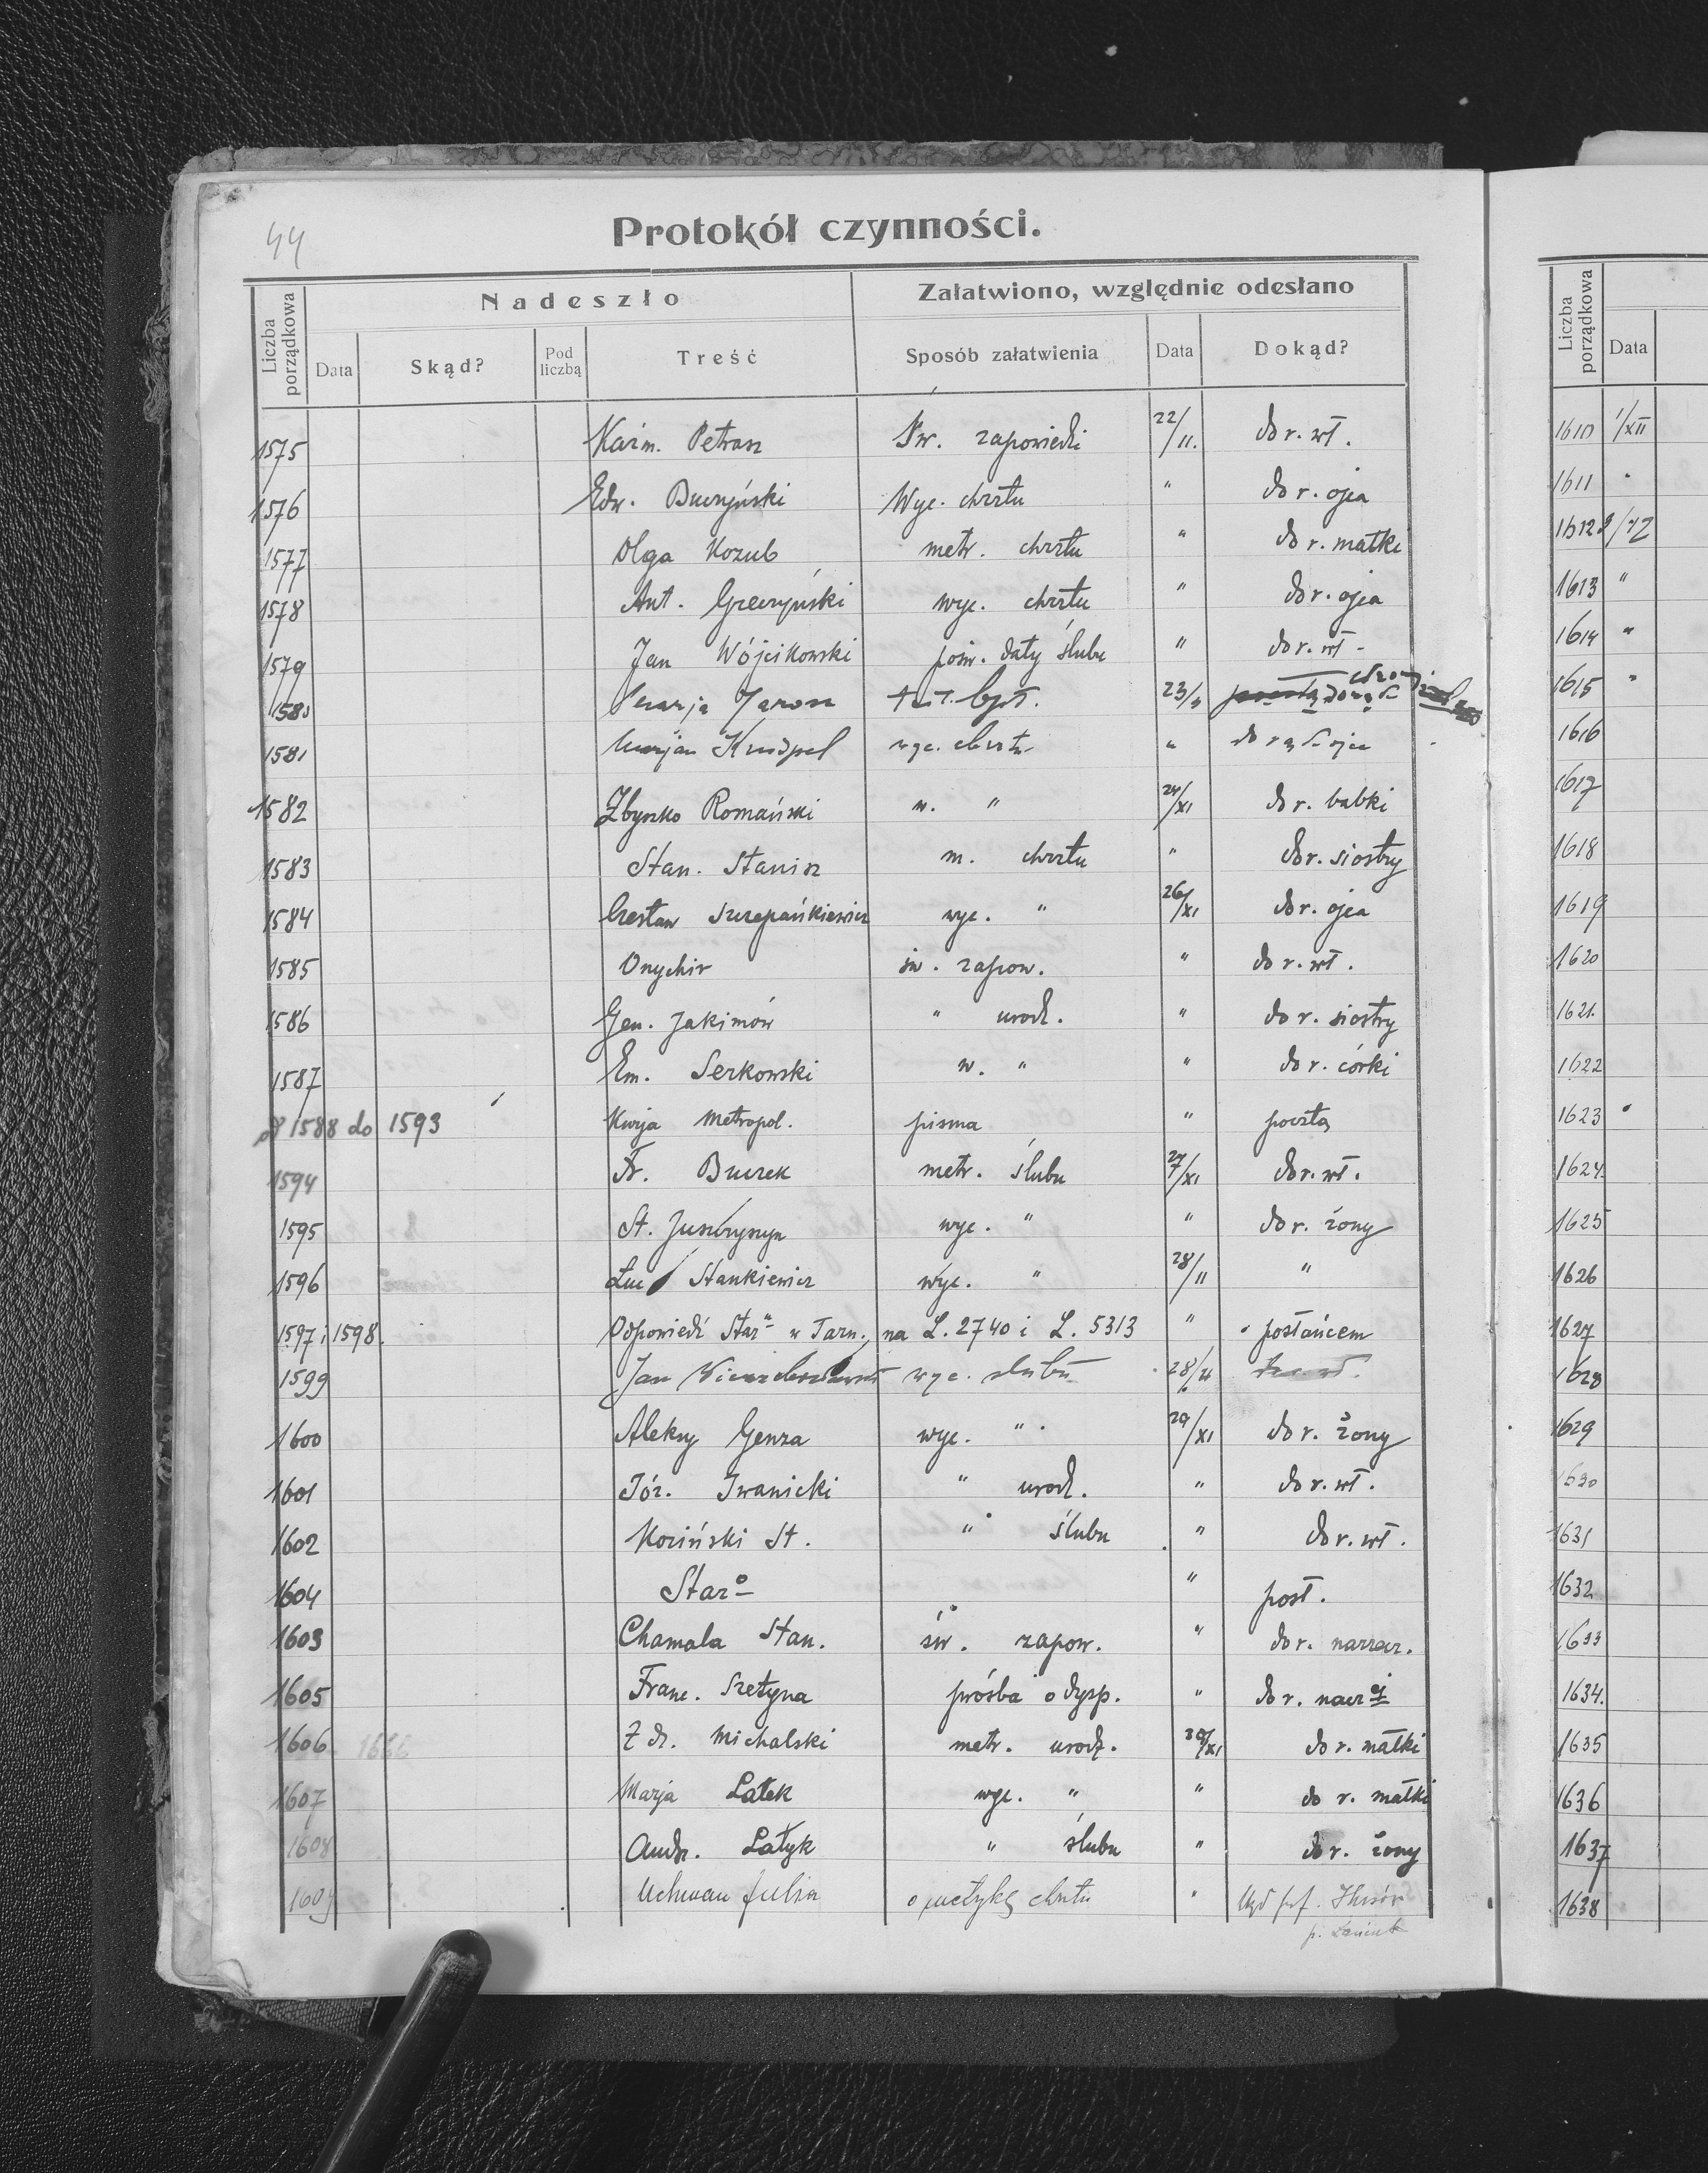 44
Protokół czynności.
Liczba porządkowa
Nadeszło
Załatwiono, względnie odesłano
Data Skąd? Pod liczbą Treść Sposób załatwienia Data Dokąd?
1575 Kaźm. Petrasz Św. zapowiedzi 22/11. do r. wł.
1576 Edw. Buczyński Wyc. chrztu " do r. ojca
1577 Olga Kozub metr. chrztu " do r. matki
1578 Ant. Greczyński wyc. chrztu " do r. ojca
1579 Jan Wójcikowski pośw. daty ślubu " do r. wł.
1580 Marja Jarosz 23/11
1581 Marjan Knöpel wyc. chrztu " do rąk ojca
1582 Zbyszko Romański w. " 24/XI do r. babki
1583 Stan. Stanisz m. chrztu " do r. siostry
1584 Czesław Szczepańkiewicz wyc. " 26/XI do r. ojca
1585 Onychir św. zapow. " do r. wł.
1586 Gen. Jakimów " urodz. " do r. siostry
1587 Em. Serkowski w. " " do r. córki
od 1588 do 1593 Kurja Metropol. pisma " pocztą
1594 Fr. Burek metr. ślubu 27/XI do r. wł.
1595 St. Juszczyszyn wyc. " " do r. żony
1596 Luc Stankiewicz wyc. " 28/11 "
1597 i 1598. Odpowiedź Star. w Tarn., na L. 2740 i L. 5313 " posłańcem
1599 Jan wyc. ślubu 28/11
1600 Aleksy Genza wyc. " 29/XI do r. żony
1601 Józ. Iwanicki " urodz. " do r. wł.
1602 Koziński St. " ślubu " do r. wł.
1604 Staro " post.
1603 Chamala Stan. św. zapow. " do r. narzecz.
1605 Franc. Szetyna prośba o dysp. " do r.
1606 Zdz. Michalski metr. urodz. 30/XI do r. matki
1607 Marja Latek wyc. " " do r. matki
1608 Andr. Łatyk " ślubu " do r. żony
1609 Uchman Julia o metrykę chrztu " Urząd par.
Liczba porządkowa Data
1610 1/XII
1611 "
1612 2/12
1613 "
1614 "
1615 "
1616
1617
1618
1619
1620
1621.
1622
1623
1624.
1625
1626
1627
1628
1629
1630
1631
1632
1633
1634.
1635
1636
1637
1638